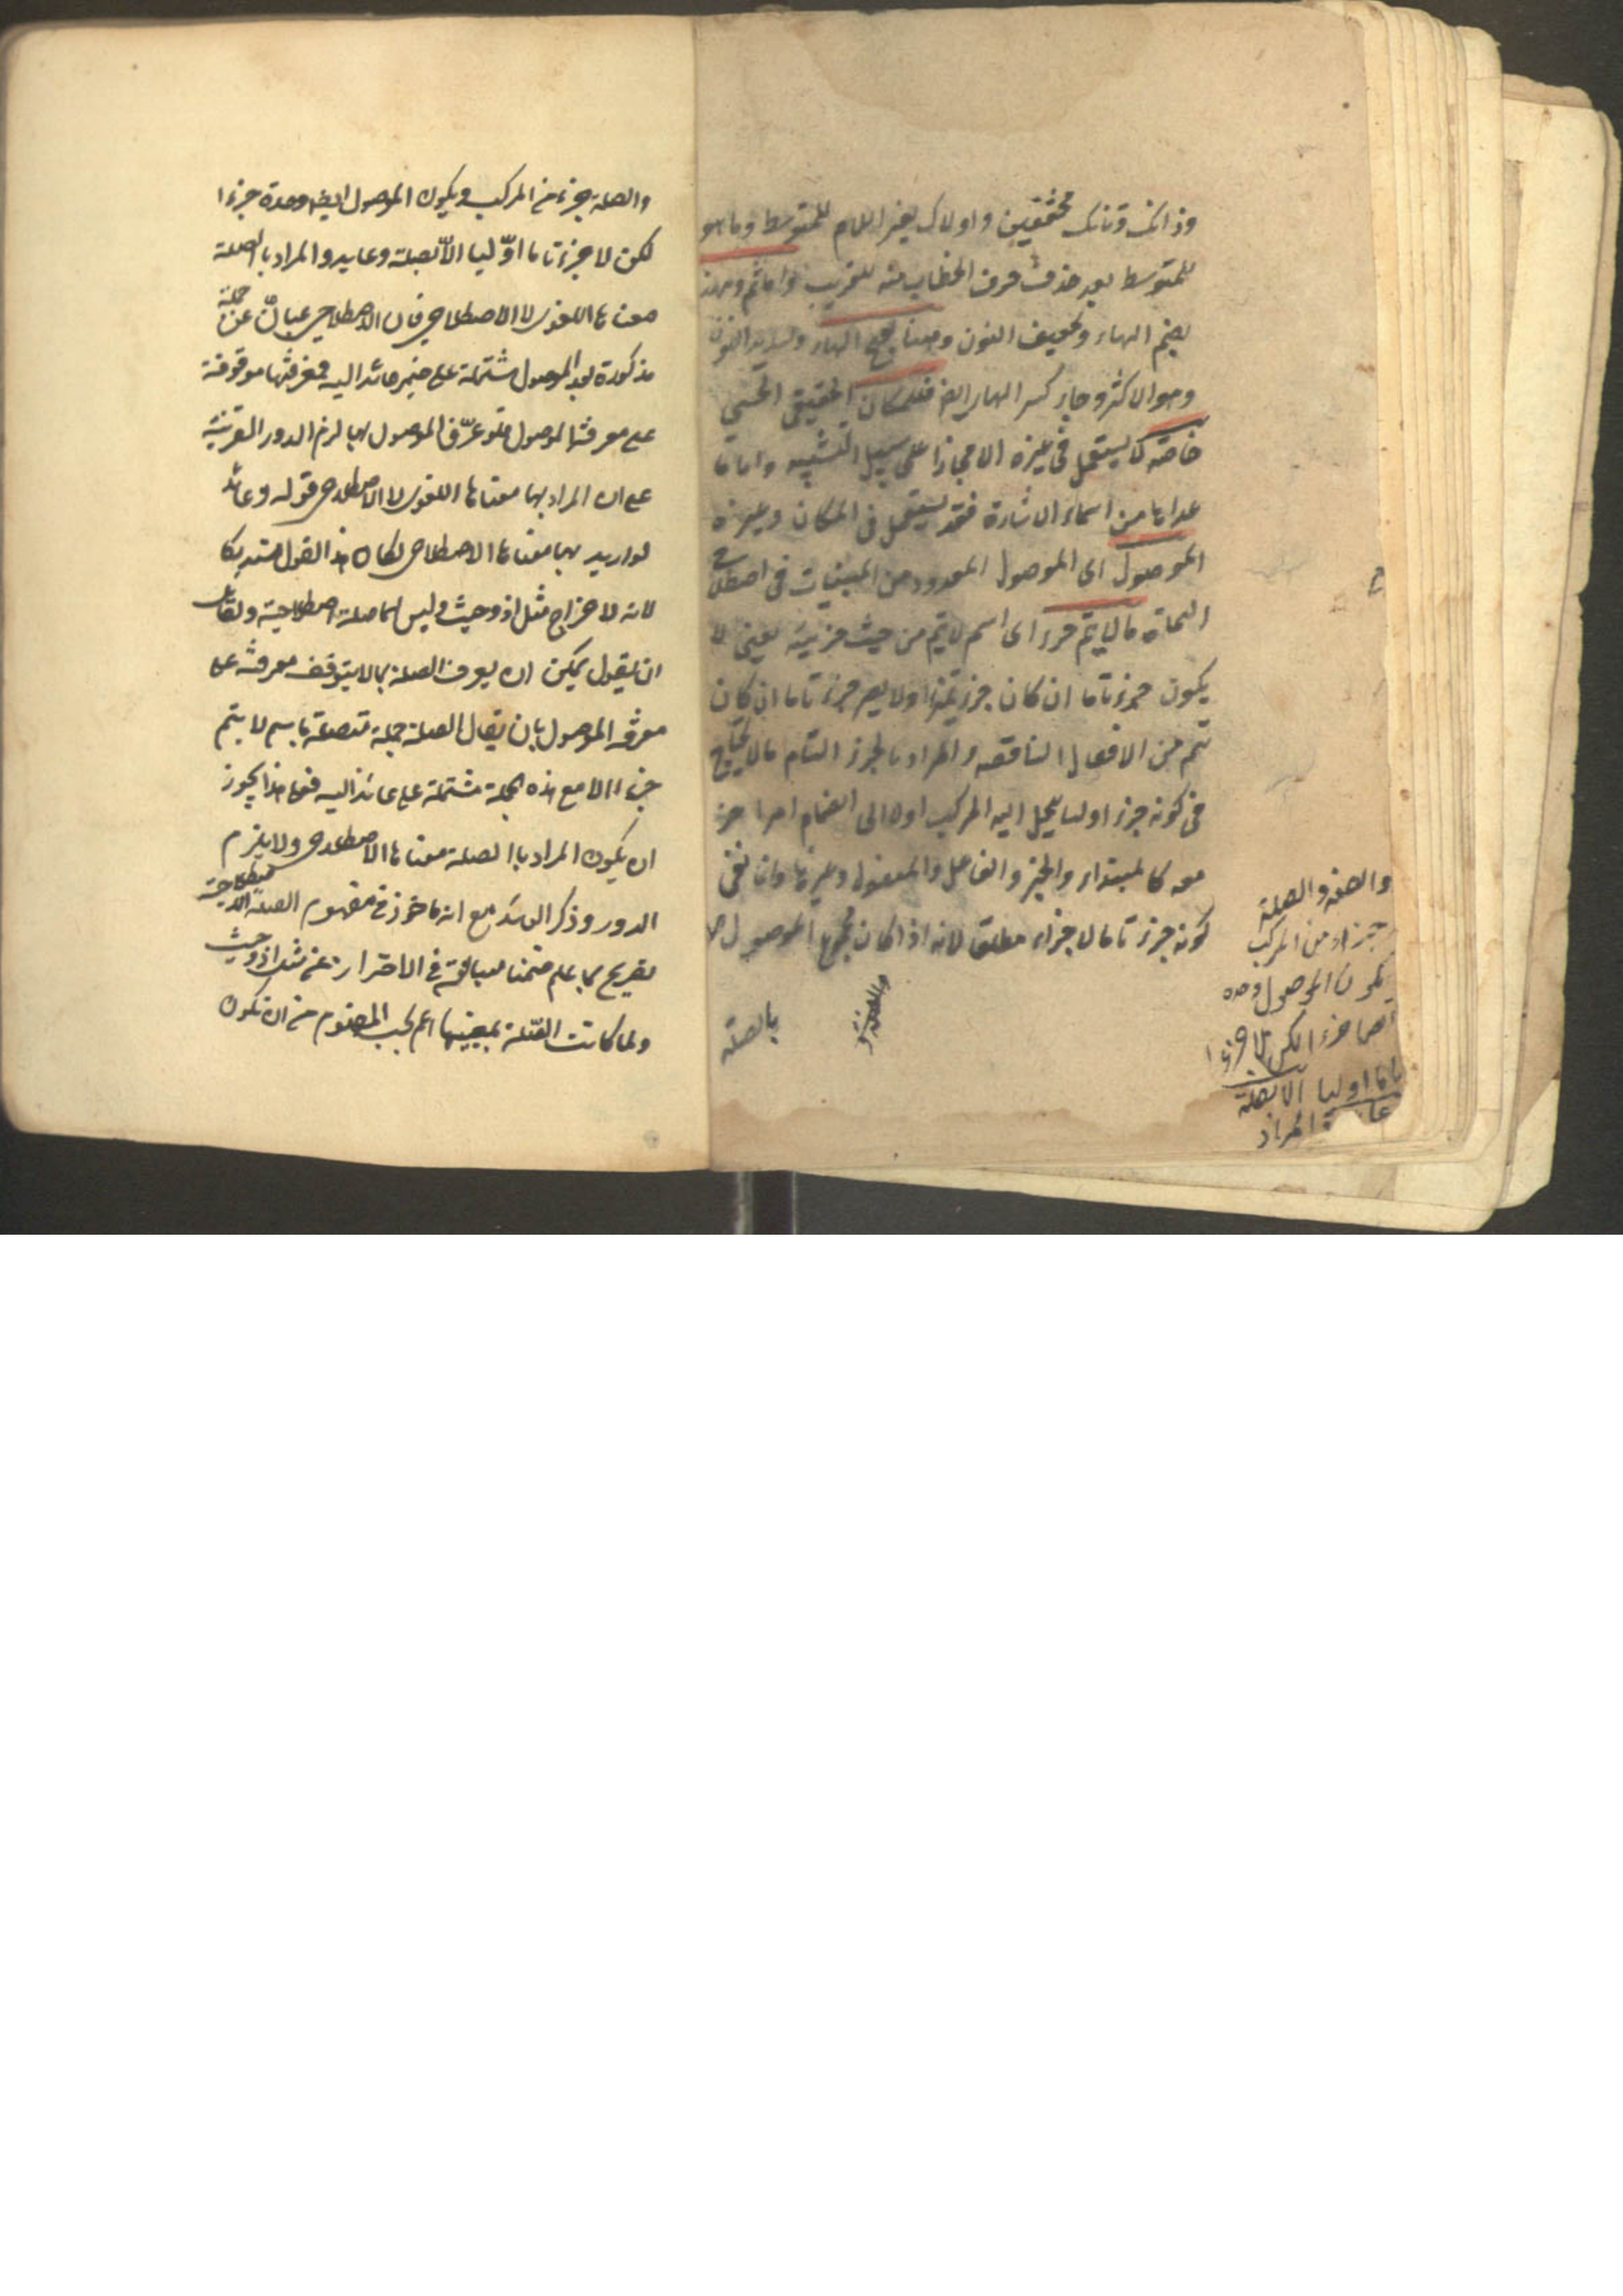 وذانك وتانك مخففتين واولاك بغير اللام للمتوسط وما هو
للمتوسط بعد حذف حرف الخطاب منه للقريب واما ثم وهنا
بضم الهاء وتخفيف النون وهنا بفتح الهاء وتشديد النون
وهو الاكثر وجاء كسر الهاء ايضا فللمكان الحقيقي الحسي
خاصة لا يستعمل في غيره الا مجازا على سبيل التشبيه واما ما
عداها من اسماء الاشارة فقد يستعمل في المكان وغيره
الموصول اي الموصول المعدود من المبنيات في اصطلاح
النحاة ما لا يتم جزء اي اسم لا يتم من حيث جزئيته يعني لا
يكون جزء تاما ان كان جزء تميزا ولا يصير جزء تاما ان كان
يتم من الافعال الناقصة والمراد بالجزء التام ما لا يحتاج
في كونه جزء اوليا ينحل اليه المركب اولا الى انضمام امر اخر
معه كالمبتداء والخبر والفاعل والمفعول وغيرها وانما نفى
كونه جزء تاما لا جزاء مطلقا لانه اذا كان مجموع الموصول
بالصلة
والصفة والصلة
جزاء من المركب
يكون الموصول وحده
ايضا جزء الكن لا جزءا
تاما اوليا الا بصلة
المراد
والصلة جزء من المركب ويكون الموصول ايضا وحده جزءا
لكن لا جزء تاما اوّليا الاّ بصلة وعايد والمراد بالصلة
معناها اللغوى لا الاصطلاحي فان الاصطلاحي عبارة عن جملة
مذكورة بعد الموصول مشتملة على ضمير عائد اليه فمعرفتها موقوفة
على معرفة الموصول فلو عرّف الموصول بها لزم الدور القرينة
على ان المراد بها معناها اللغوى لا الاصطلاحى قوله وعائد
لو اريد بها معناها الاصطلاحى لكان هذا القول مستدركا
لانه لاخراج مثل اذ وحيث وليس لهما صلة اصطلاحية ولقائل
ان يقول يمكن ان يعرف الصلة بما لا يتوقف معرفته على
معرفة الموصول بان يقال الصلة جملة متصلة باسم لا يتم
جزءا الا مع هذه الجملة مشتملة على عائد اليه فعلى هذا يجوز
ان يكون المراد باالصلة معناها الاصطلاحى ولا يلزم
الدور وذكر العائد مع انه ماخوذ في مفهوم الصلة الاصطلاحية
تصريح بما علم ضمنا مبالغة في الاحتراز عن مثل اذ وحيث
ولما كانت الصّلة بمعنيها اعم بحسب المفهوم من ان تكون